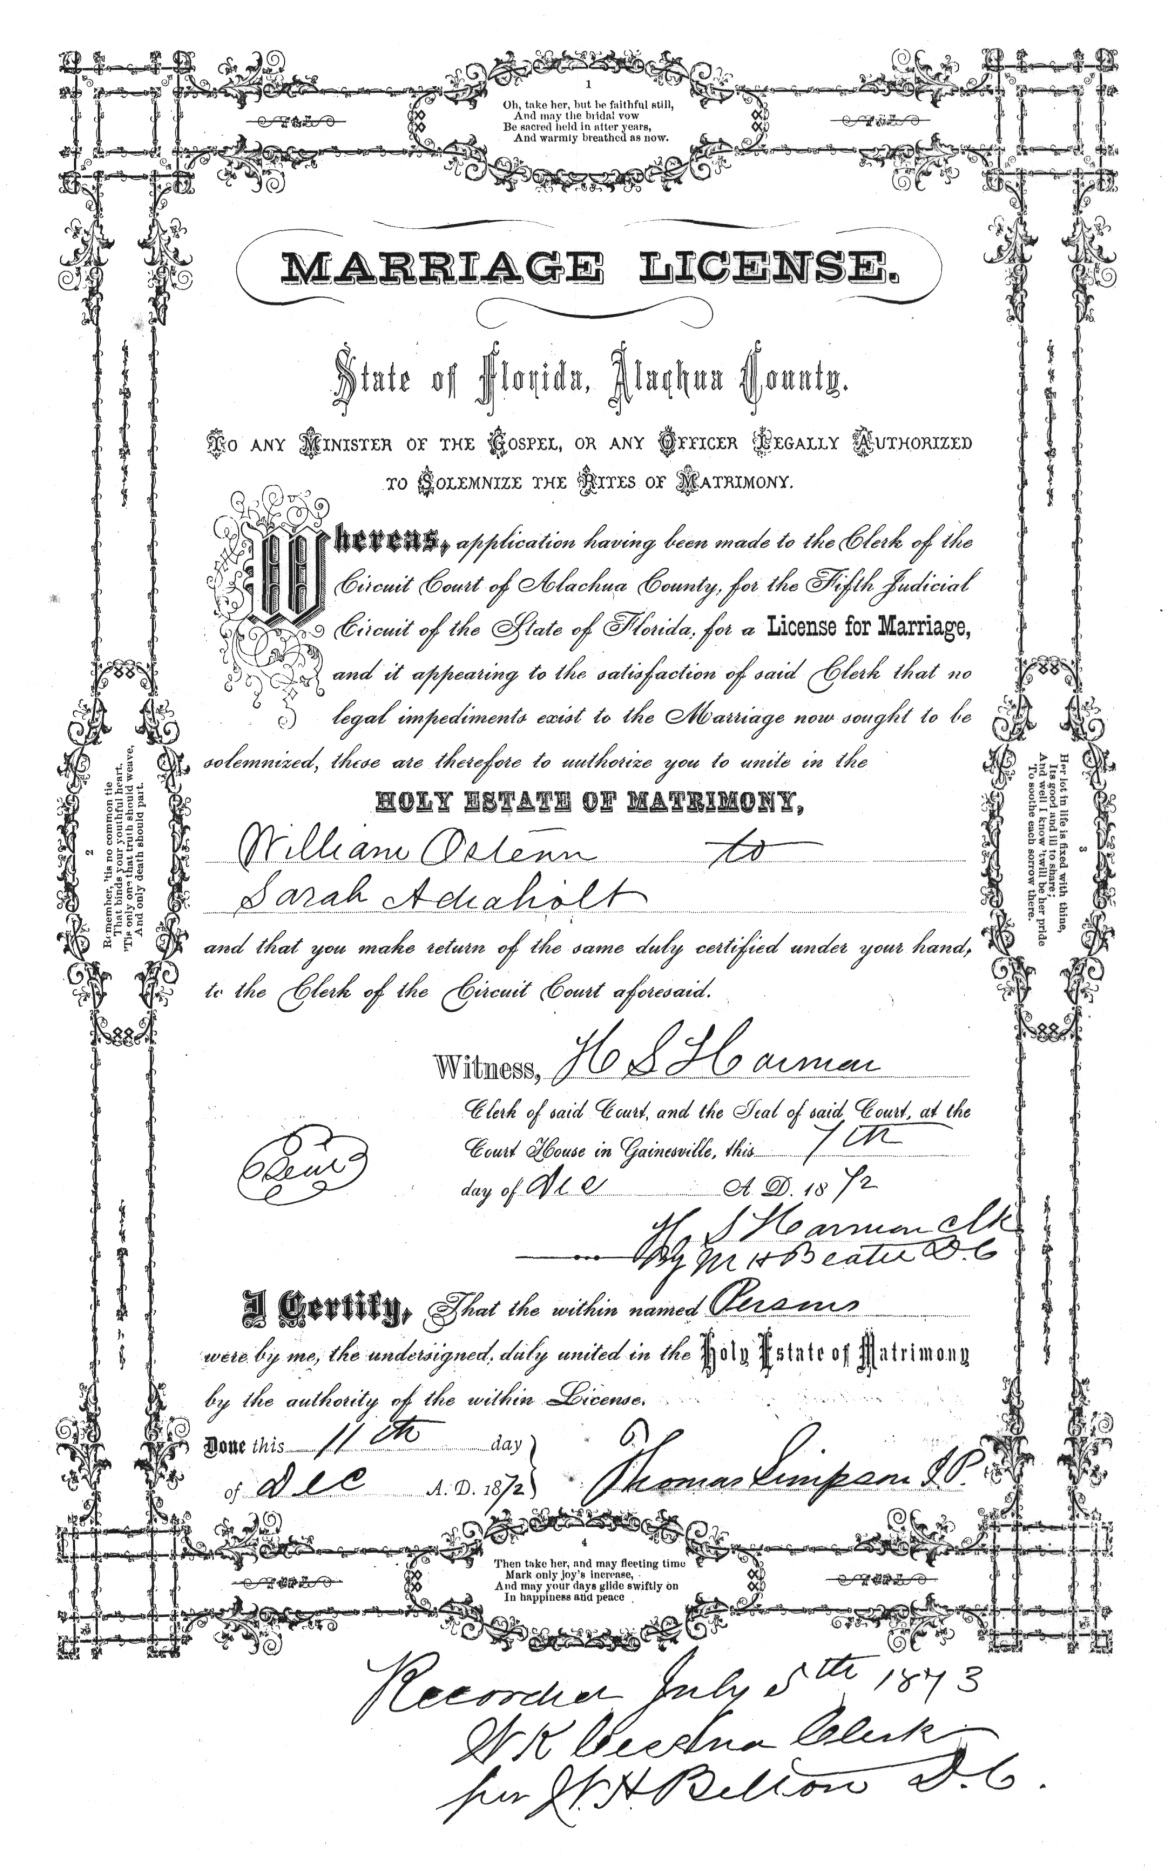 1
Oh, take her, but be faithful still,
And may the bridal vow
Be sacred held in after years,
And warmly breathed as now.
MARRIAGE LICENSE.
State of Florida, Alachua County.
TO ANY MINISTER OF THE GOSPEL, OR ANY OFFICER LEGALLY AUTHORIZED
TO SOLEMNIZE THE RITES OF MATRIMONY.
Whereas, application having been made to the Clerk of the
Circuit Court of Alachua County, for the Fifth Judicial
Circuit of the State of Florida, for a License for Marriage,
and it appearing to the satisfaction of said Clerk that no
legal impediments exist to the Marriage now sought to be
solemnized, these are therefore to authorize you to unite in the
HOLY ESTATE OF MATRIMONY,
William Osteen to
Sarah
and that you make return of the same duly certified under your hand,
to the Clerk of the Circuit Court aforesaid.
Witness, H S Harmon
Clerk of said Court, and the Seal of said Court, at the
Court House in Gainesville, this 7th
day of Dec A. D. 1872
Seal
H. S Harmon Clk
By M H D.C
I Certify, That the within named Persons
were by me, the undersigned, duly united in the Holy Estate of Matrimony
by the authority of the within License.
Done this 11th day
of Dec A. D. 1872
Thomas Simpson J P.
2
Remember, 'tis no common tie
That binds your youthful heart,
'Tis only one that truth should weave,
And only death should part.
3
Her lot in life is fixed with thine,
Its good and ill to share;
And well I know 'twill be her pride
To soothe each sorrow there.
4
Then take her, and may fleeting time
Mark only joy's increase,
And may your days glide swiftly on
In happiness and peace
Recorded July 5th 1873
Cessna Clerk
per H Belton D.C.